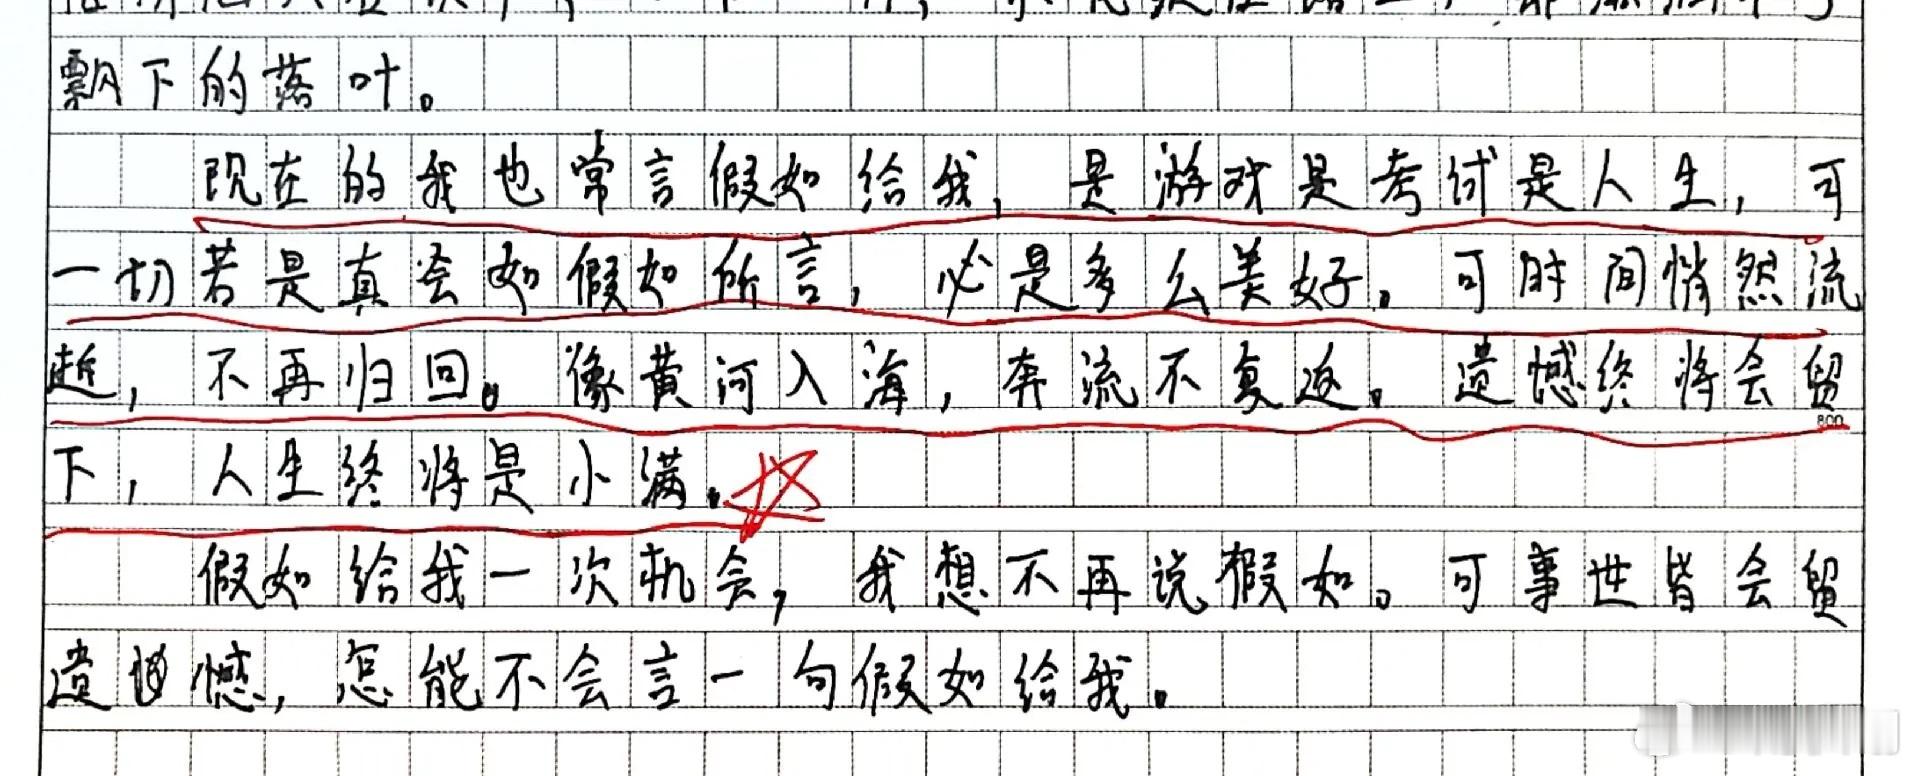 飘下的落叶。
现在的我也常言假如给我，是游戏是考试是人生，可
一切若是真会如假如所言，必是多么美好。可时间悄然流
逝，不再归回。像黄河入海，奔流不复返。遗憾终将会留
800
下，人生终将是小满。
假如给我一次机会，我想不再说假如。可事世皆会留
遗憾，怎能不会言一句假如给我。